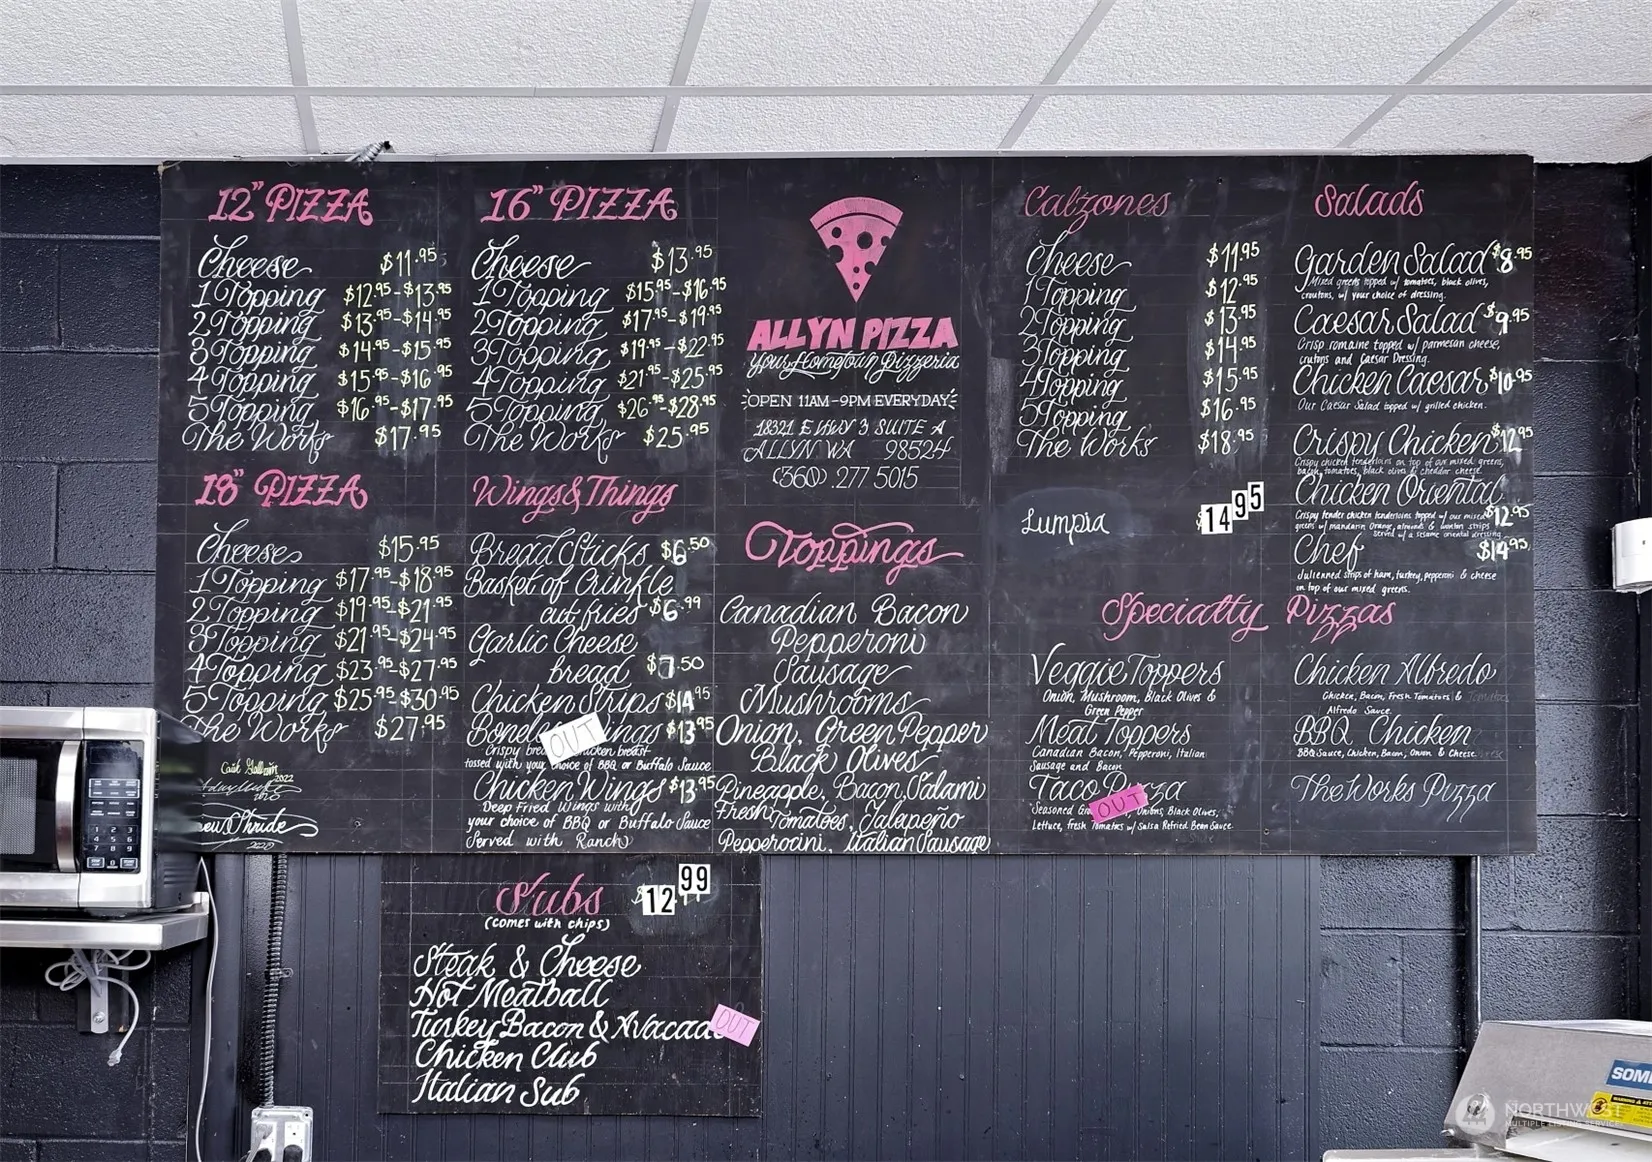 12" PIZZA
Cheese $11.95
1 Topping $12.95-$13.95
2 Topping $13.95-$14.95
3 Topping $14.95-$15.95
4 Topping $15.95-$16.95
5 Topping $16.95-$17.95
The Works $17.95
18" PIZZA
Cheese $15.95
1 Topping $17.95-$18.95
2 Topping $19.95-$21.95
3 Topping $21.95-$24.95
4 Topping $23.95-$27.95
5 Topping $25.95-$30.95
The Works $27.95
2022
2020
16" PIZZA
Cheese $13.95
1 Topping $15.95-$16.95
2 Topping $17.95-$19.95
3 Topping $19.95-$22.95
4 Topping $21.95-$25.95
5 Topping $26.95-$28.95
The Works $25.95
Wings & Things
Bread Sticks $6.50
Basket of Crinkle
cut fries $6.99
Garlic Cheese
bread $7.50
Chicken Strips $14.95
OUT
$13.95
Crispy chicken breast
tossed with your choice of BBQ or Buffalo Sauce
Chicken Wings $13.95
Deep Fried Wings with
your choice of BBQ or Buffalo Sauce
Served with Ranch
ALLYN PIZZA
Your Hometown Pizzeria
OPEN 11AM-9PM EVERYDAY
18321 E HWY 3 SUITE A
ALLYN WA 98524
(360) 277 5015
Toppings
Canadian Bacon
Pepperoni
Sausage
Mushrooms
Onion, Green Pepper
Black Olives
Pineapple, Bacon, Salami
Fresh Tomatoes, Jalepeño
Pepperocini, Italian Sausage
Calzones
Cheese $11.95
1 Topping $12.95
2 Topping $13.95
3 Topping $14.95
4 Topping $15.95
5 Topping $16.95
The Works $18.95
Lumpia $14.95
Salads
Garden Salad $8.95
Mixed greens topped w/ tomatoes, black olives,
croutons, w/ your choice of dressing.
Caesar Salad $9.95
Crisp romaine topped w/ parmesan cheese,
crutons and Caesar Dressing.
Chicken Caesar $10.95
Our Caesar Salad topped w/ grilled chicken.
Crispy Chicken $12.95
Crispy chicken tenderloins on top of our mixed greens,
bacon, tomatoes, black olives & cheddar cheese.
Chicken Oriental $12.95
Crispy tender chicken tenderloins topped w/ our mixed
greens w/ mandarin orange, almonds & wonton strips
served w/ a sesame oriental dressing
Chef $14.95
Julienned strips of ham, turkey, pepperoni & cheese
on top of our mixed greens.
Specialty Pizzas
Veggie Toppers
Onion, Mushroom, Black Olives &
Green Pepper
Meat Toppers
Canadian Bacon, Pepperoni, Italian
Sausage and Bacon
Taco Pizza
OUT
Seasoned Onions, Black Olives,
Lettuce, fresh Tomatoes w/ Salsa Refried Bean Sauce
Chicken Alfredo
Chicken, Bacon, Fresh Tomatoes &
Alfredo Sauce
BBQ Chicken
BBQ Sauce, Chicken, Bacon, Onion & Cheese
The Works Pizza
Subs $12.99
(comes with chips)
Steak & Cheese
Hot Meatball
Turkey Bacon & Avacado OUT
Chicken Club
Italian Sub
NORTHWEST
MULTIPLE LISTING SERVICE